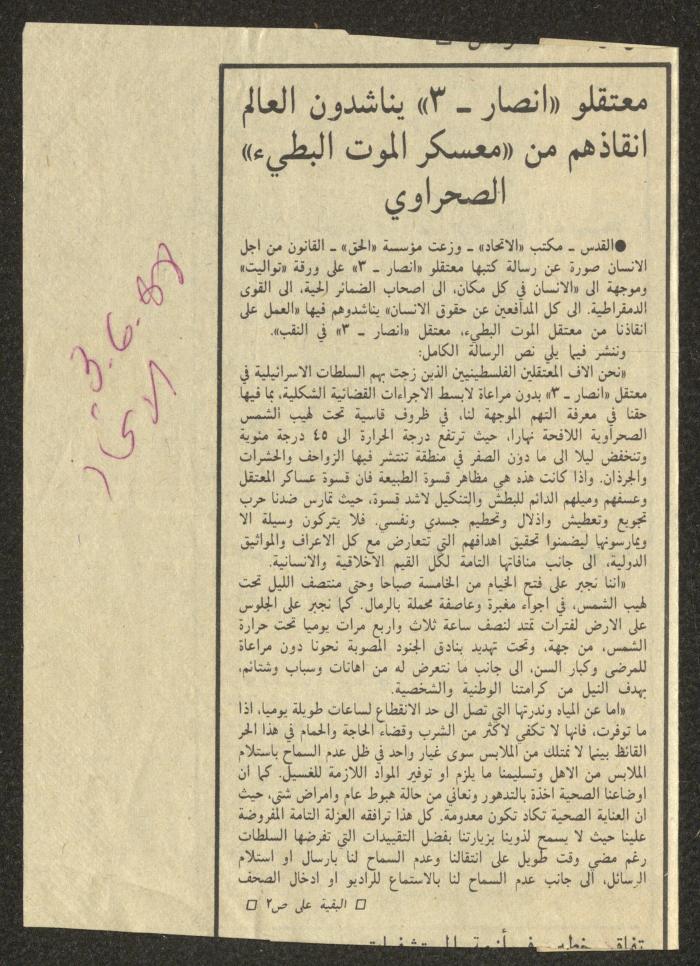 معتقلو «انصار ـ ٣» يناشدون العالم
انقاذهم من «معسكر الموت البطيء»
الصحراوي
●القدس ـ مكتب «الاتحاد» ـ وزعت مؤسسة «الحق» ـ القانون من اجل
الانسان صورة عن رسالة كتبها معتقلو «انصار ـ ٣» على ورقة «تواليت»
وموجهة الى «الانسان في كل مكان، الى اصحاب الضمائر الحية، الى القوى
الدمقراطية. الى كل المدافعين عن حقوق الانسان» يناشدوهم فيها «العمل على
انقاذنا من معتقل الموت البطيء، معتقل «انصار ـ ٣» في النقب».
وننشر فيما يلي نص الرسالة الكامل:
«نحن الاف المعتقلين الفلسطينيين الذين زجت بهم السلطات الاسرائيلية في
معتقل «انصار ـ ٣» بدون مراعاة لابسط الاجراءات القضائية الشكلية، بما فيها
حقنا في معرفة التهم الموجهة لنا، في ظروف قاسية تحت لهيب الشمس
الصحراوية اللافحة نهارا، حيث ترتفع درجة الحرارة الى ٤٥ درجة مئوية
وتنخفض ليلا الى ما دون الصفر في منطقة تنتشر فيها الزواحف والحشرات
والجرذان. واذا كانت هذه هي مظاهر قسوة الطبيعة فان قسوة عساكر المعتقل
وعسفهم وميلهم الدائم للبطش والتنكيل لاشد قسوة، حيث تمارس ضدنا حرب
تجويع وتعطيش واذلال وتحطيم جسدي ونفسي. فلا يتركون وسيلة الا
ويمارسونها ليضمنوا تحقيق اهدافهم التي تتعارض مع كل الاعراف والمواثيق
الدولية، الى جانب منافاتها التامة لكل القيم الاخلاقية والانسانية.
«اننا نجبر على فتح الخيام من الخامسة صباحا وحتى منتصف الليل تحت
لهيب الشمس، في اجواء مغبرة وعاصفة محملة بالرمال. كما نجبر على الجلوس
على الارض لفترات تمتد لنصف ساعة ثلاث واربع مرات يوميا تحت حرارة
الشمس، من جهة، وتحت تهديد بنادق الجنود المصوبة نحونا دون مراعاة
للمرضى وكبار السن، الى جانب ما نتعرض له من اهانات وسباب وشتائم،
بهدف النيل من كرامتنا الوطنية والشخصية.
«اما عن المياه وندرتها التي تصل الى حد الانقطاع لساعات طويلة يوميا، اذا
ما توفرت، فانها لا تكفي لاكثر من الشرب وقضاء الحاجة والحمام في هذا الحر
القائظ بينما لا نمتلك من الملابس سوى غيار واحد في ظل عدم السماح باستلام
الملابس من الاهل وتسليمنا ما يلزم او توفير المواد اللازمة للغسيل. كما ان
اوضاعنا الصحية اخذة بالتدهور ونعاني من حالة هبوط عام وامراض شتى، حيث
ان العناية الصحية تكاد تكون معدومة. كل هذا ترافقه العزلة التامة المفروضة
علينا حيث لا يسمح لذوينا بزيارتنا بفضل التقييدات التي تفرضها السلطات
رغم مضي وقت طويل على انتقالنا وعدم السماح لنا بارسال او استلام
الرسائل، الى جانب عدم السماح لنا بالاستماع للراديو او ادخال الصحف
□ البقية على ص٢ □
3.6.88